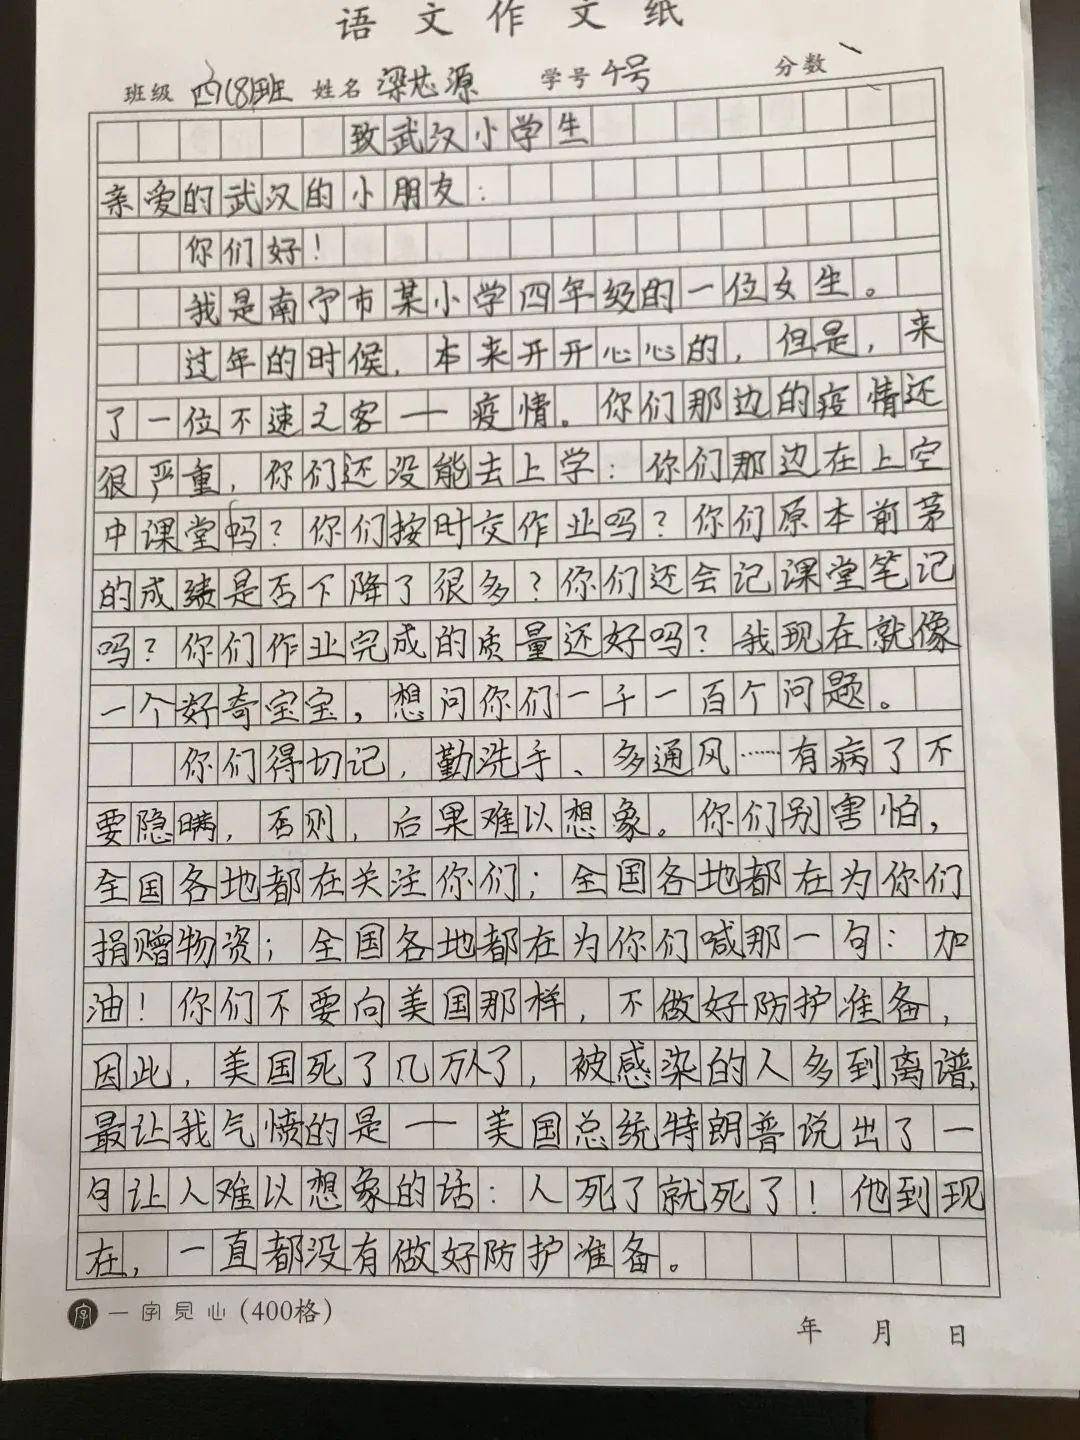 语文作文纸
班级 四(8)班 姓名 梁芯源 学号 4号 分数
致武汉小学生
亲爱的武汉的小朋友：
你们好！
我是南宁市某小学四年级的一位女生。
过年的时候，本来开开心心的，但是，来
了一位不速之客——疫情。你们那边的疫情还
很严重，你们还没能去上学：你们那边在上空
中课堂吗？你们按时交作业吗？你们原本前茅
的成绩是否下降了很多？你们还会记课堂笔记
吗？你们作业完成的质量还好吗？我现在就像
一个好奇宝宝，想问你们一千一百个问题。
你们得切记，勤洗手、多通风……有病了不
要隐瞒，否则，后果难以想象。你们别害怕，
全国各地都在关注你们；全国各地都在为你们
捐赠物资；全国各地都在为你们喊那一句：加
油！你们不要向美国那样，不做好防护准备，
因此，美国死了几万人了，被感染的人多到离谱，
最让我气愤的是——美国总统特朗普说出了一
句让人难以想象的话：人死了就死了！他到现
在，一直都没有做好防护准备。
字 一字见心(400格)
年 月 日